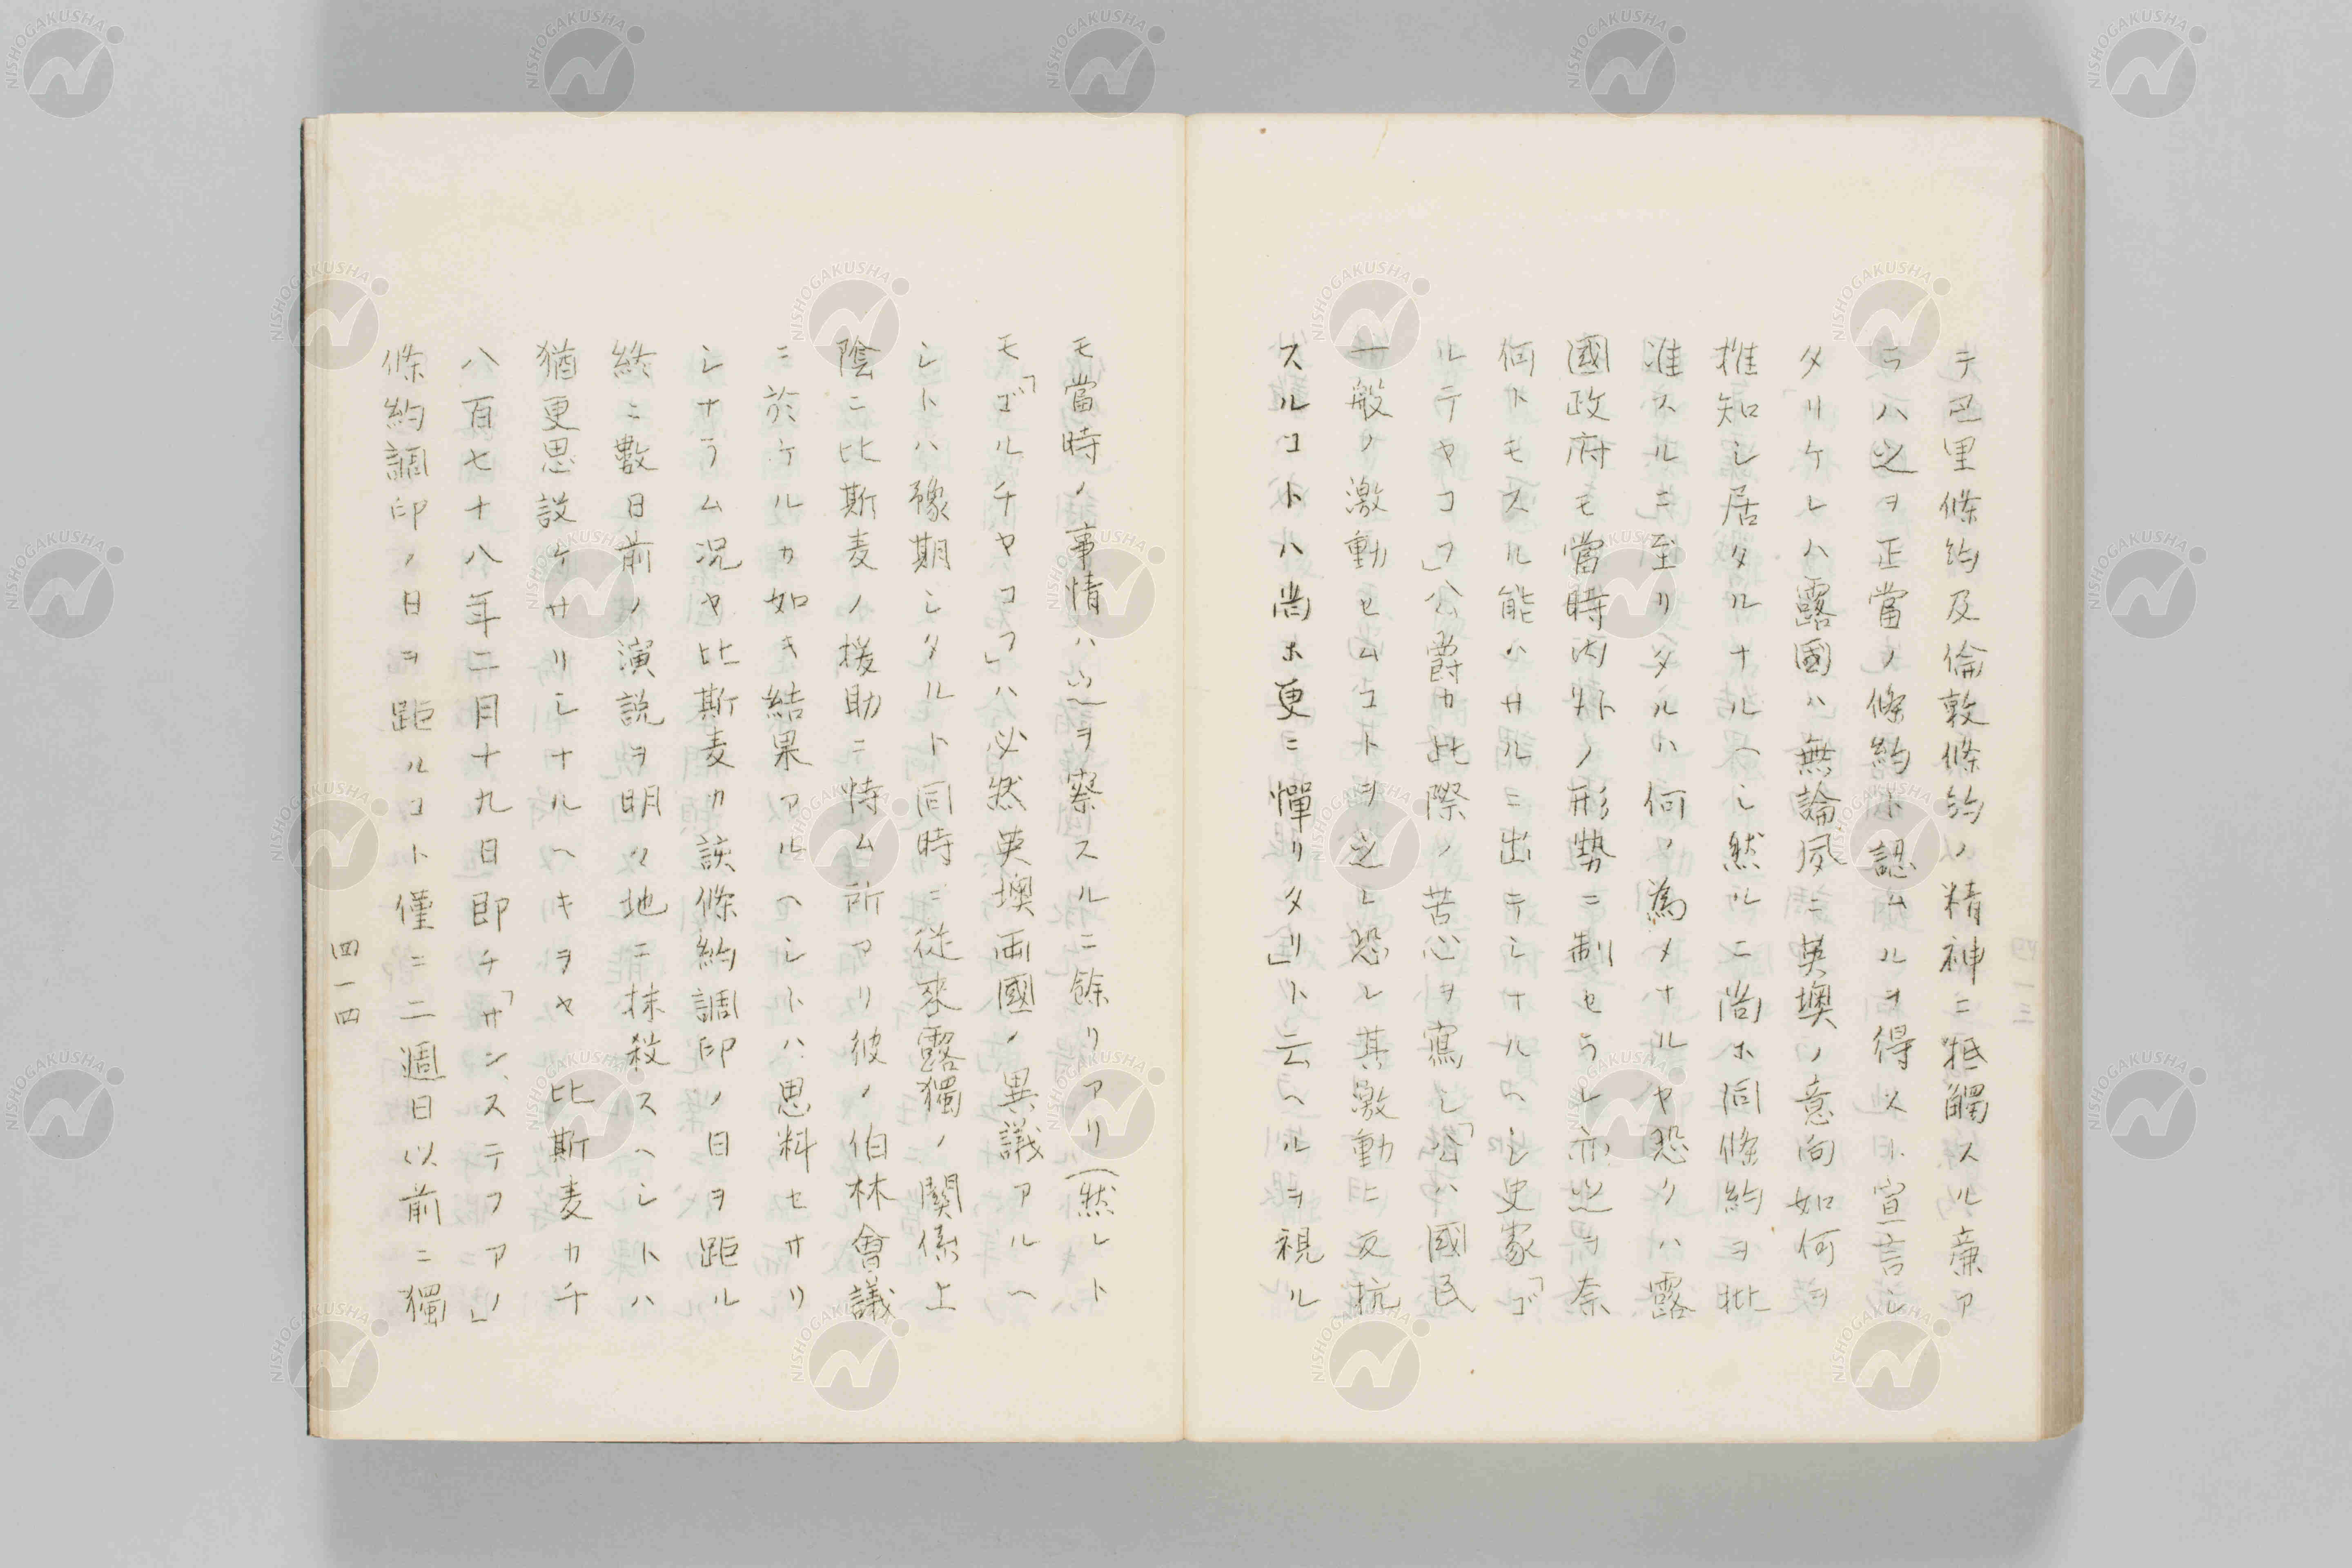 テ巴里條約及倫敦條約ノ精神ニ牴觸スル廉ア
ラハ之ヲ正當ノ條約ト認ムルヲ得スト宣言シ
タリケレハ露國ハ無論夙ニ英墺ノ意向如何ヲ
推知シ居タルナルヘシ然ルニ尚ホ同條約ヲ批
准スルニ至リタルハ何ノ為メナルヤ恐クハ露
國政府モ當時内外ノ形勢ニ制セラレ亦之ヲ奈
何トモスル能ハサルニ出テシナルヘシ史家「ゴ
ルテヤコフ」公爵カ此際ノ苦心ヲ寫シ「公ハ國民
一般ノ激動セムコトヲ之レ恐レ其激動ニ反抗
スルコトハ尚ホ更ニ憚リタリ」ト云ヘルヲ視ル
モ當時ノ事情ハ之ヲ察スルニ餘リアリ(然レト
モ「ゴルチヤコフ」ハ必然英墺両國ノ異議アルヘ
シトハ豫期シタルト同時ニ従來露獨ノ關係上
陰ニ比斯麦ノ援助ニ恃ム所アリ彼ノ伯林會議
ニ於ケルカ如キ結果アルヘシトハ思料セサリ
シナラム况ヤ比斯麦カ該條約調印ノ日ヲ距ル
終ニ數日前ノ演説ヲ明々地ニ抹殺スヘシトハ
猶更思設ケサリシナルヘキヲヤ 比斯麦カ千
八百七十八年二月十九日即チ「サンステフアノ」
條約調印ノ日ヲ距ルコト僅ニ二週日以前ニ獨
四一四
四一三
NISHOGAKUSHA